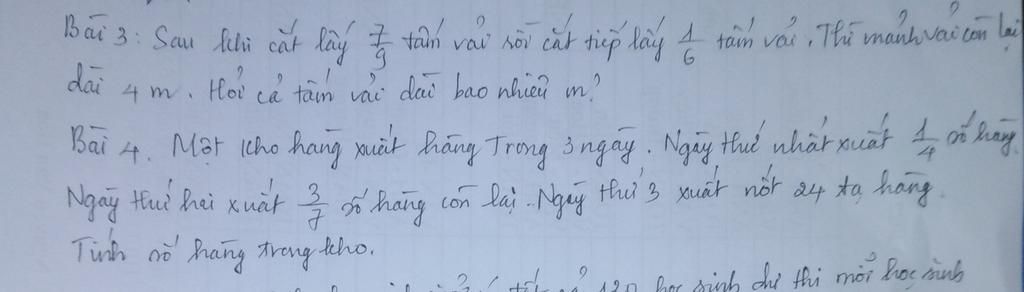 Bài 3: Sau khi cắt lấy 7/9 tấm vải rồi cắt tiếp lấy 1/6 tấm vải. Thì mảnh vải còn lại
dài 4 m. Hỏi cả tấm vải dài bao nhiêu m?
Bài 4. Một kho hàng xuất hàng Trong 3 ngày. Ngày thứ nhất xuất 1/4 số hàng.
Ngày thứ hai xuất 3/7 số hàng còn lại. Ngày thứ 3 xuất nốt 24 tạ hàng.
Tính số hàng trong kho.
học sinh dự thi mỗi học sinh